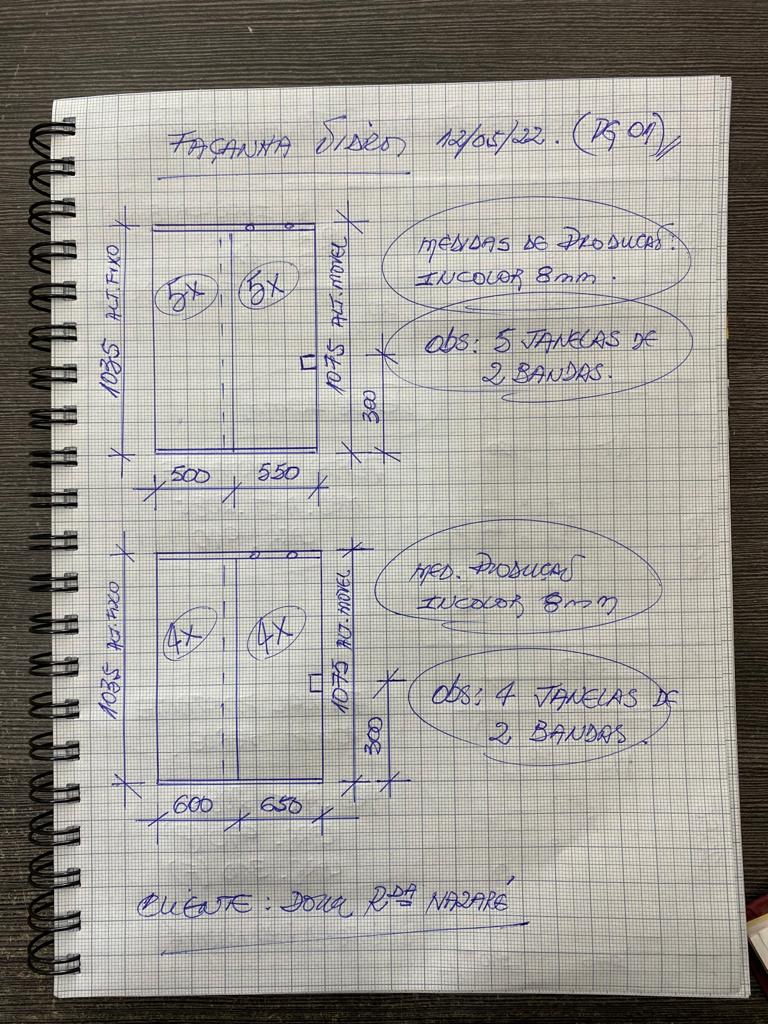 FAÇANHA VIDROS 12/05/22. (PG 01)
MEDIDAS DE PRODUÇÃO:
INCOLOR 8mm.
obs: 5 JANELAS DE
2 BANDAS.
1035 ALT. FIXO
5X 5X
1075 ALT. MOVEL
300
500 550
MED. PRODUÇÃO
INCOLOR 8mm
obs: 4 JANELAS DE
2 BANDAS.
1035 ALT. FIXO
4X 4X
1075 ALT. MOVEL
300
600 650
CLIENTE: DONA RDA NAZARÉ